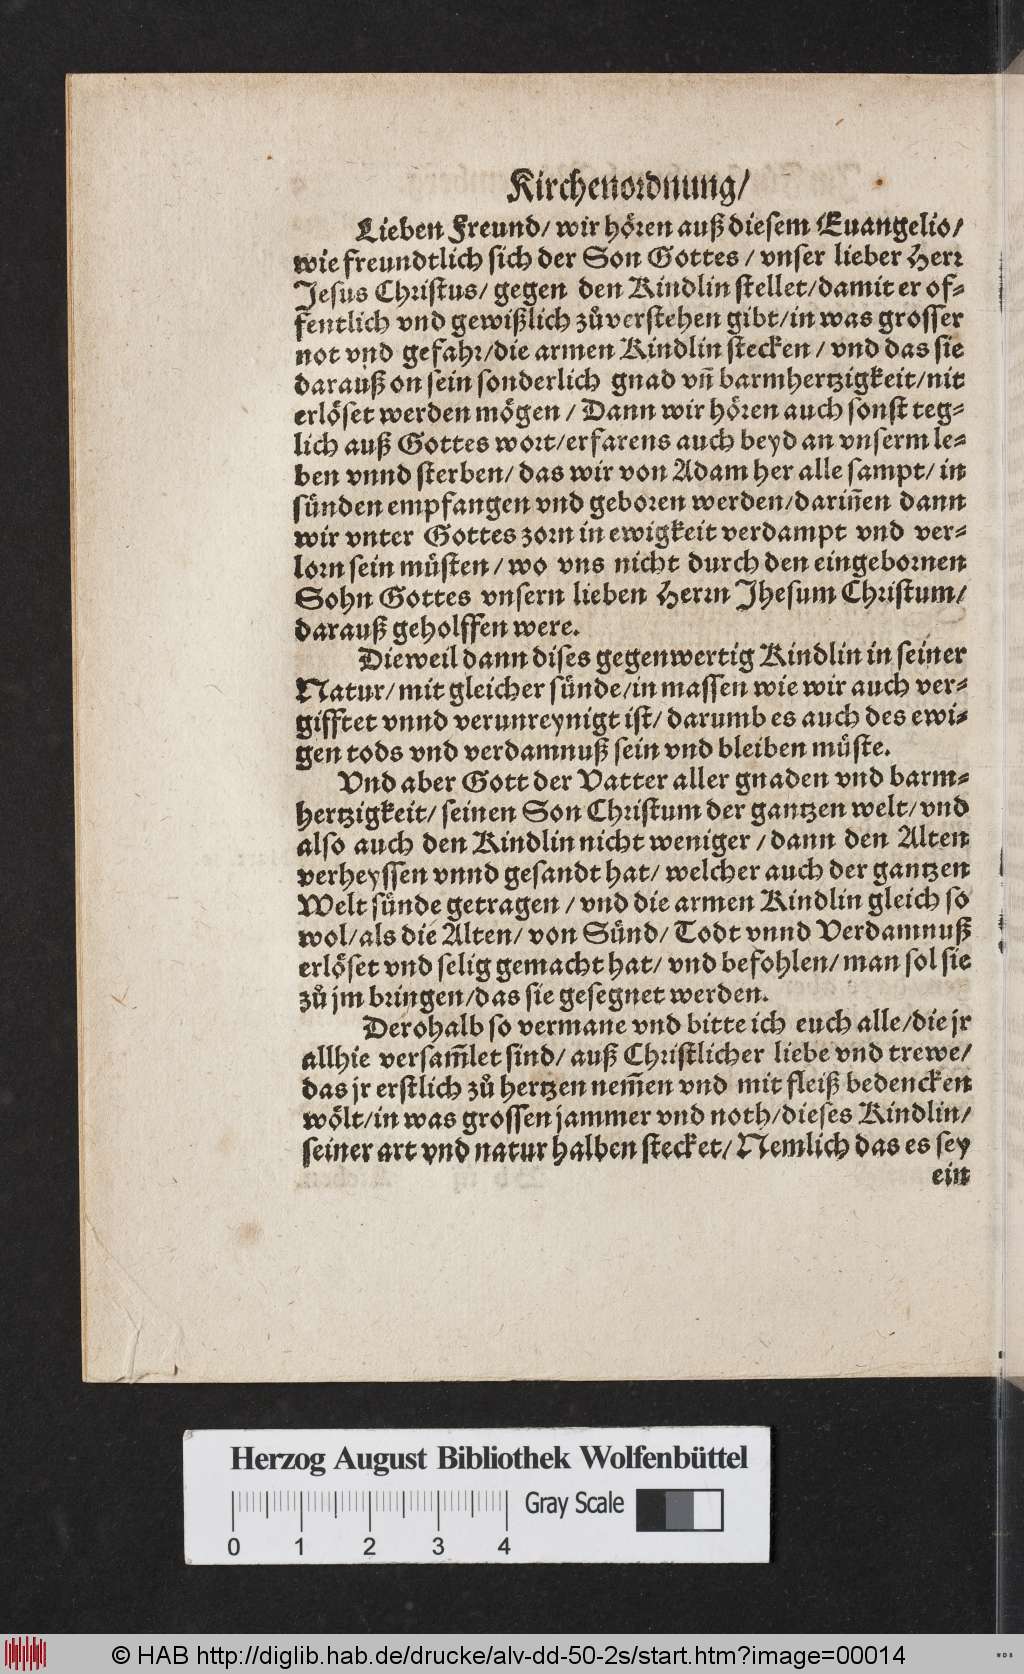 Kirchenordnung/
Lieben Freund/ wir hören auß diesem Euangelio/
wie freundtlich sich der Son Gottes / vnser lieber Herr
Jesus Christus/ gegen den Kindlin stellet/damit er of-
fentlich vnd gewißlich zůverstehen gibt/in was grosser
not vnd gefahr/die armen Kindlin stecken / vnd das sie
darauß on sein sonderlich gnad vñ barmhertzigkeit/nit
erlöset werden mögen / Dann wir hören auch sonst teg-
lich auß Gottes wort/erfarens auch beyd an vnserm le-
ben vnnd sterben/ das wir von Adam her alle sampt/ in
sünden empfangen vnd geboren werden/dariñen dann
wir vnter Gottes zorn in ewigkeit verdampt vnd ver-
lorn sein müsten / wo vns nicht durch den eingebornen
Sohn Gottes vnsern lieben Herrn Jhesum Christum/
darauß geholffen were.
Dieweil dann dises gegenwertig Kindlin in seiner
Natur/ mit gleicher sünde/in massen wie wir auch ver-
gifftet vnnd verunreynigt ist/ darumb es auch des ewi-
gen tods vnd verdamnuß sein vnd bleiben müste.
Vnd aber Gott der Vatter aller gnaden vnd barm-
hertzigkeit/ seinen Son Christum der gantzen welt/ vnd
also auch den Kindlin nicht weniger / dann den Alten
verheyssen vnnd gesandt hat/ welcher auch der gantzen
Welt sünde getragen / vnd die armen Kindlin gleich so
wol/als die Alten/ von Sünd/ Todt vnnd Verdamnuß
erlöset vnd selig gemacht hat/ vnd befohlen/ man sol sie
zů jm bringen/das sie gesegnet werden.
Derohalb so vermane vnd bitte ich euch alle/die jr
allhie versam̃let sind/ auß Christlicher liebe vnd trewe/
das jr erstlich zů hertzen nem̃en vnd mit fleiß bedencken
wölt/in was grossen jammer vnd noth/dieses Kindlin/
seiner art vnd natur halben stecket/ Nemlich das es sey
ein
Herzog August Bibliothek Wolfenbüttel
Gray Scale
0 1 2 3 4
© HAB http://diglib.hab.de/drucke/alv-dd-50-2s/start.htm?image=00014